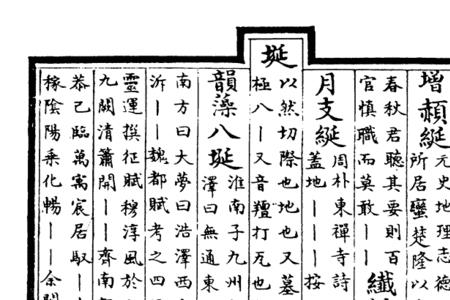 增頳綖元史地理志德
所居蠻楚隆以
春秋君聽其要則百
官慎職而莫敢丨丨
纖
月支綖周朴東禪寺詩
蓋地丨丨丨丨按
埏以然切際也地也又墓
極八丨丨又音羶打瓦也
韻藻八埏淮南子九州
澤曰無通東
南方曰大夢曰浩澤西
泝丨丨魏都賦考之四
靈運撰征賦穆淳風於
九闕清簫開丨丨齊南
恭己臨萬㝢宸居馭丨
稼陰陽乘化暢丨丨余闕